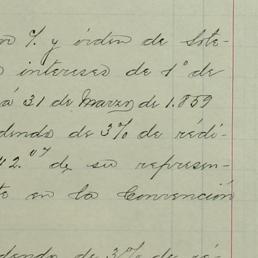 y órden de Sete-
intereses de 1° de
á 31 de Marzo de 1.859
dendo de 3% de rédi-
42.07 de su represen-
te en la Convención
dendo de 3% de ré-